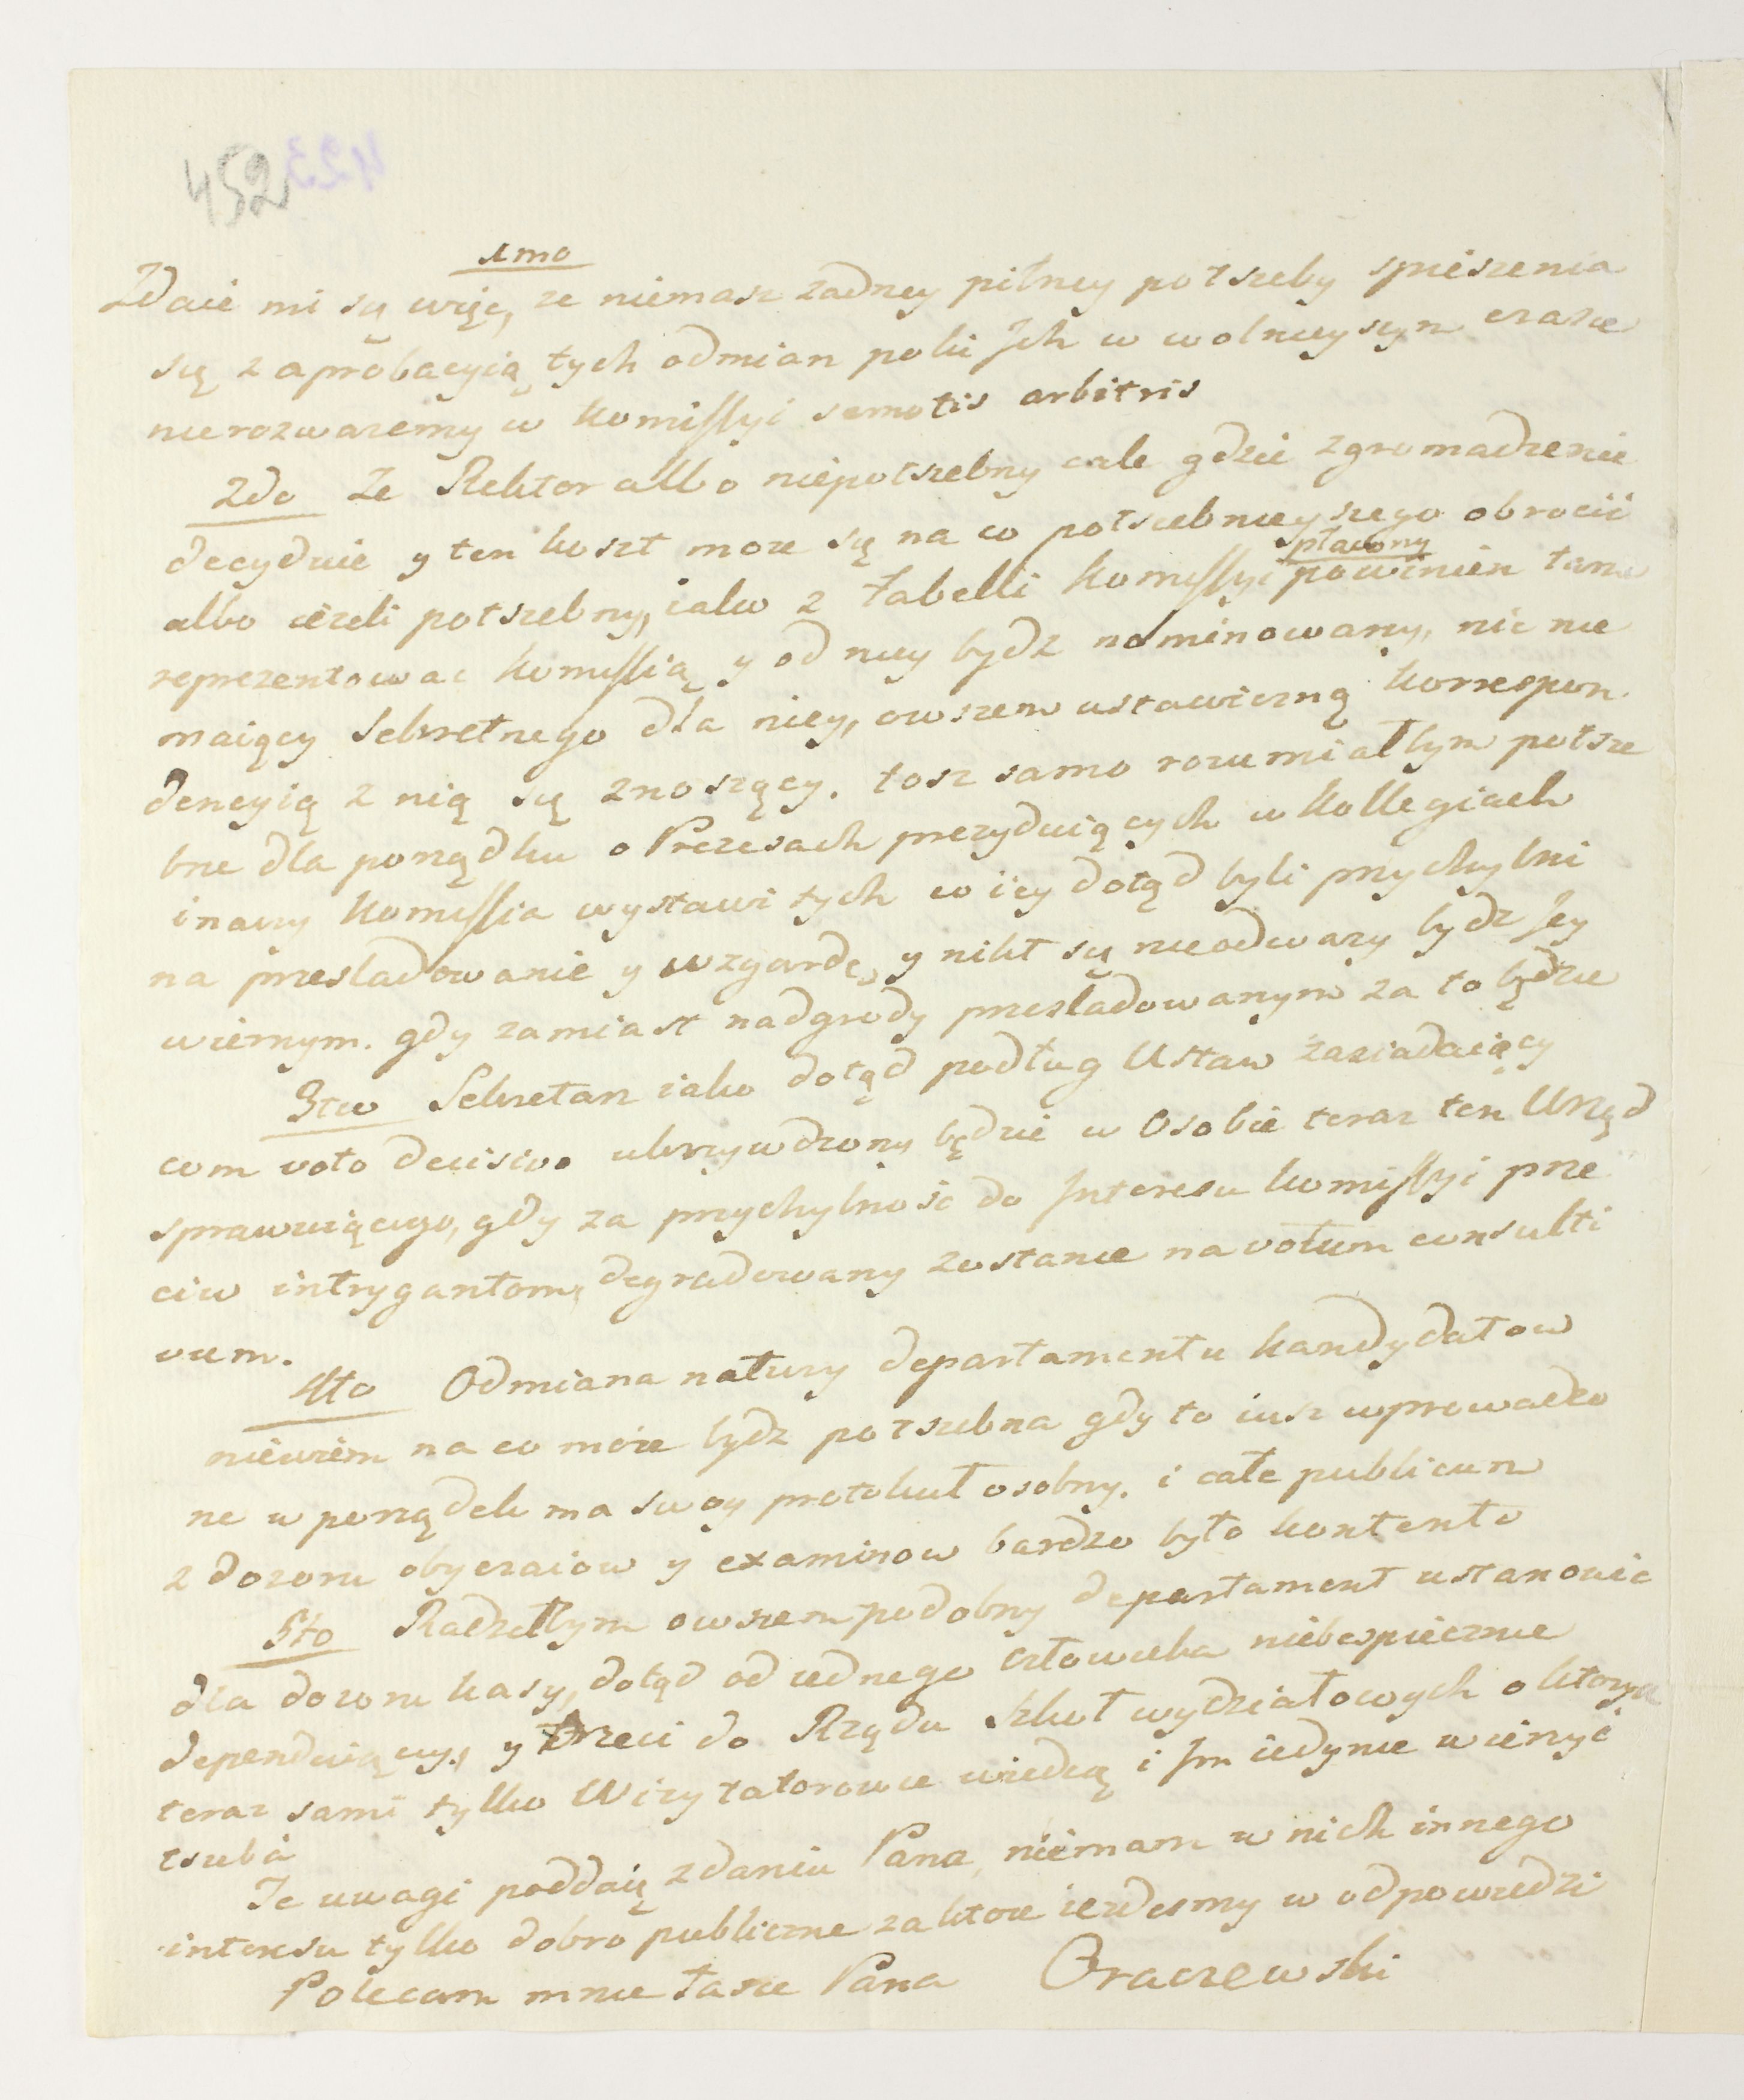 452 423
1mo
Zdaie mi się więc, ze niemasz zadney pilney potrzeby spieszenia
się z aprobacyią tych odmian poki Jch w wolnieyszym czasie
nierozwazemy w Komissyi semotis arbitris
2do Ze Rektor albo niepotrzebny cale gdzie zgromadzenie
decyduie y ten koszt moze się na co potrzebnieyszego obrocić
płacony
albo iezeli potrzebny, iako z Tabelli Komissyi powinien tam
reprezentowac Komissią y od niey bydz nominowany, nic nie
maiący Sekretnego dla niey, owszem ustawiczną korrespon
dencyią z nią się znoszący. tosz samo rozumiałbym potrze
bne dla porządku o Prezesach prezyduiących w Kollegiach
inaczy Komissia wystawi tych co iey dotąd byli przychylni
na przesladowanie y wzgardę, y nikt się nieodwazy bydz Jey
wiernym. gdy zamiast nadgrody przesladowanym za to będzie
3tio Sekretarz iako dotąd podług Ustaw zasiadaiący
com voto decisivo ukrzywdzony będzie w Osobie teraz ten Urząd
sprawuiącego, gdy za przychylnosc do Jnteresu Komissyi prze
ciw intrygantom, degradowany zostanie na votum consulti
vum.
4to Odmiana natury departamentu kandydatow
niewiem na co może bydz potrzebna gdy to iusz wprowadzo
ne w porządek ma swoy protokuł osobny. i całe publicum
z dozoru obyczaiow y examinow bardzo było kontento
5to Radziłbym owszem podobny departament ustanowic
dla dozoru kasy, dotąd od iednego człowieka niebespiecznie
dependuiący, y trzeci do Rządu szkuł wydziałowych o ktorych
teraz sami tylko Wizytatorowie wiedzą i Jm iedynie wierzyć
trzeba
Te uwagi poddaię zdaniu Pana niemam w nich innego
interesu tylko dobro publiczne za ktore iezdesmy w odpowiedzi
Polecam mnie łasce Pana Oraczewski